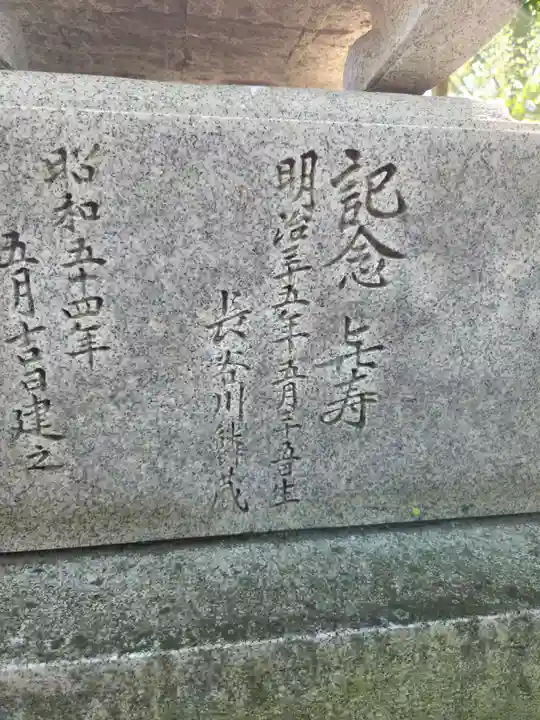 記念 㐂寿
明治三十五年五月二十五日生
長谷川
昭和五十四年
五月吉日建之